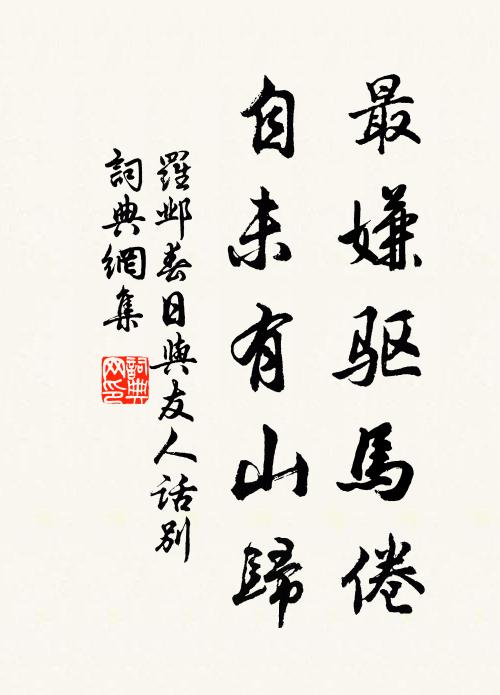 最嫌驱馬倦
自未有山歸
羅邺春日與友人话别
詞典網集
詞典网印